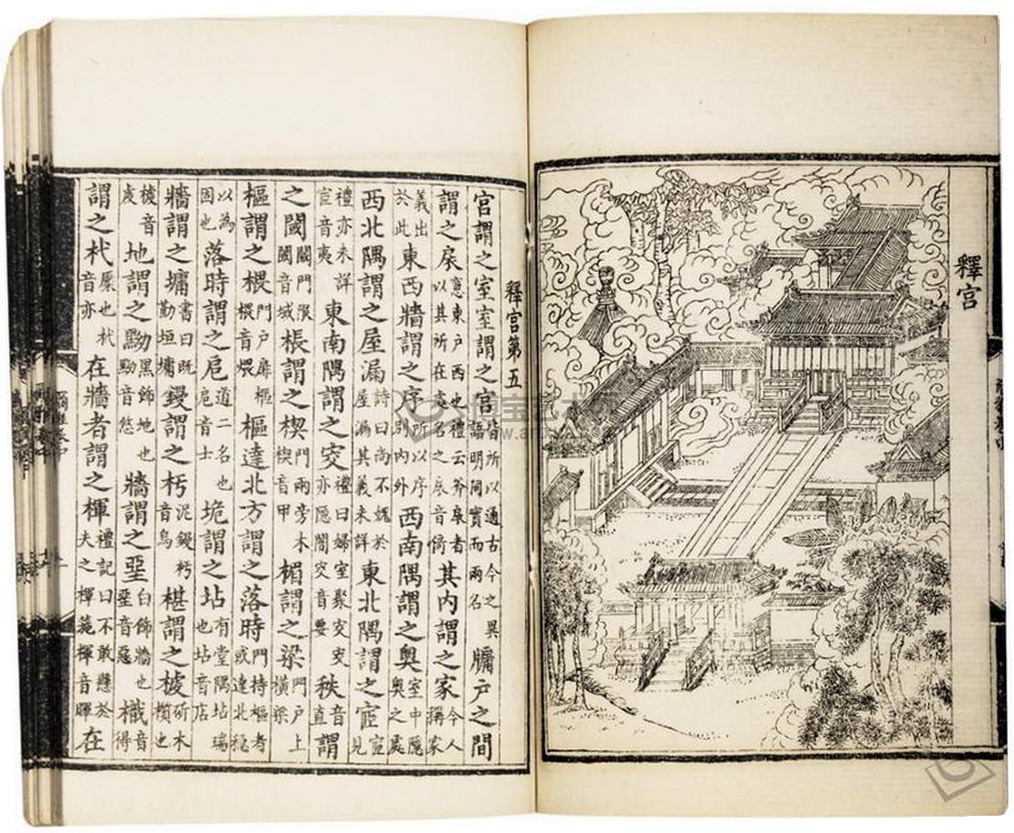 釋宮
釋宮第五
宮謂之室室謂之宮皆所以通古今之異語明同實而兩名牖戶之間
謂之扆窻東戶西也禮云斧扆者以其所在處名之扆音倚其内謂之家今人稱家
義出於此東西牆謂之序所以序別内外西南隅謂之奧室中隱奧之處
西北隅謂之屋漏詩曰尚不媿於屋漏其義未詳東北隅謂之宧宧見
禮亦未詳宧音夷東南隅謂之窔禮曰婦室聚窔窔亦隱闇窔音要柣音直謂
之閾閾門限閾音域棖謂之楔門兩旁木楔音甲楣謂之梁門戶上橫梁
樞謂之椳門戶扉樞椳音煨樞達北方謂之落時門持樞者或達北穩
以為固也落時謂之戹道二名也戹音士垝謂之坫在堂隅坫端也坫音店
牆謂之墉書曰既勤垣墉鏝謂之杇泥鏝杇音烏椹謂之榩斫木櫍也
榩音虔地謂之黝黑飾地也黝音怮牆謂之堊白飾牆也堊音惡樴音得
謂之杙橜也杙音亦在牆者謂之楎禮記曰不敢縣於夫之楎箷楎音暉在